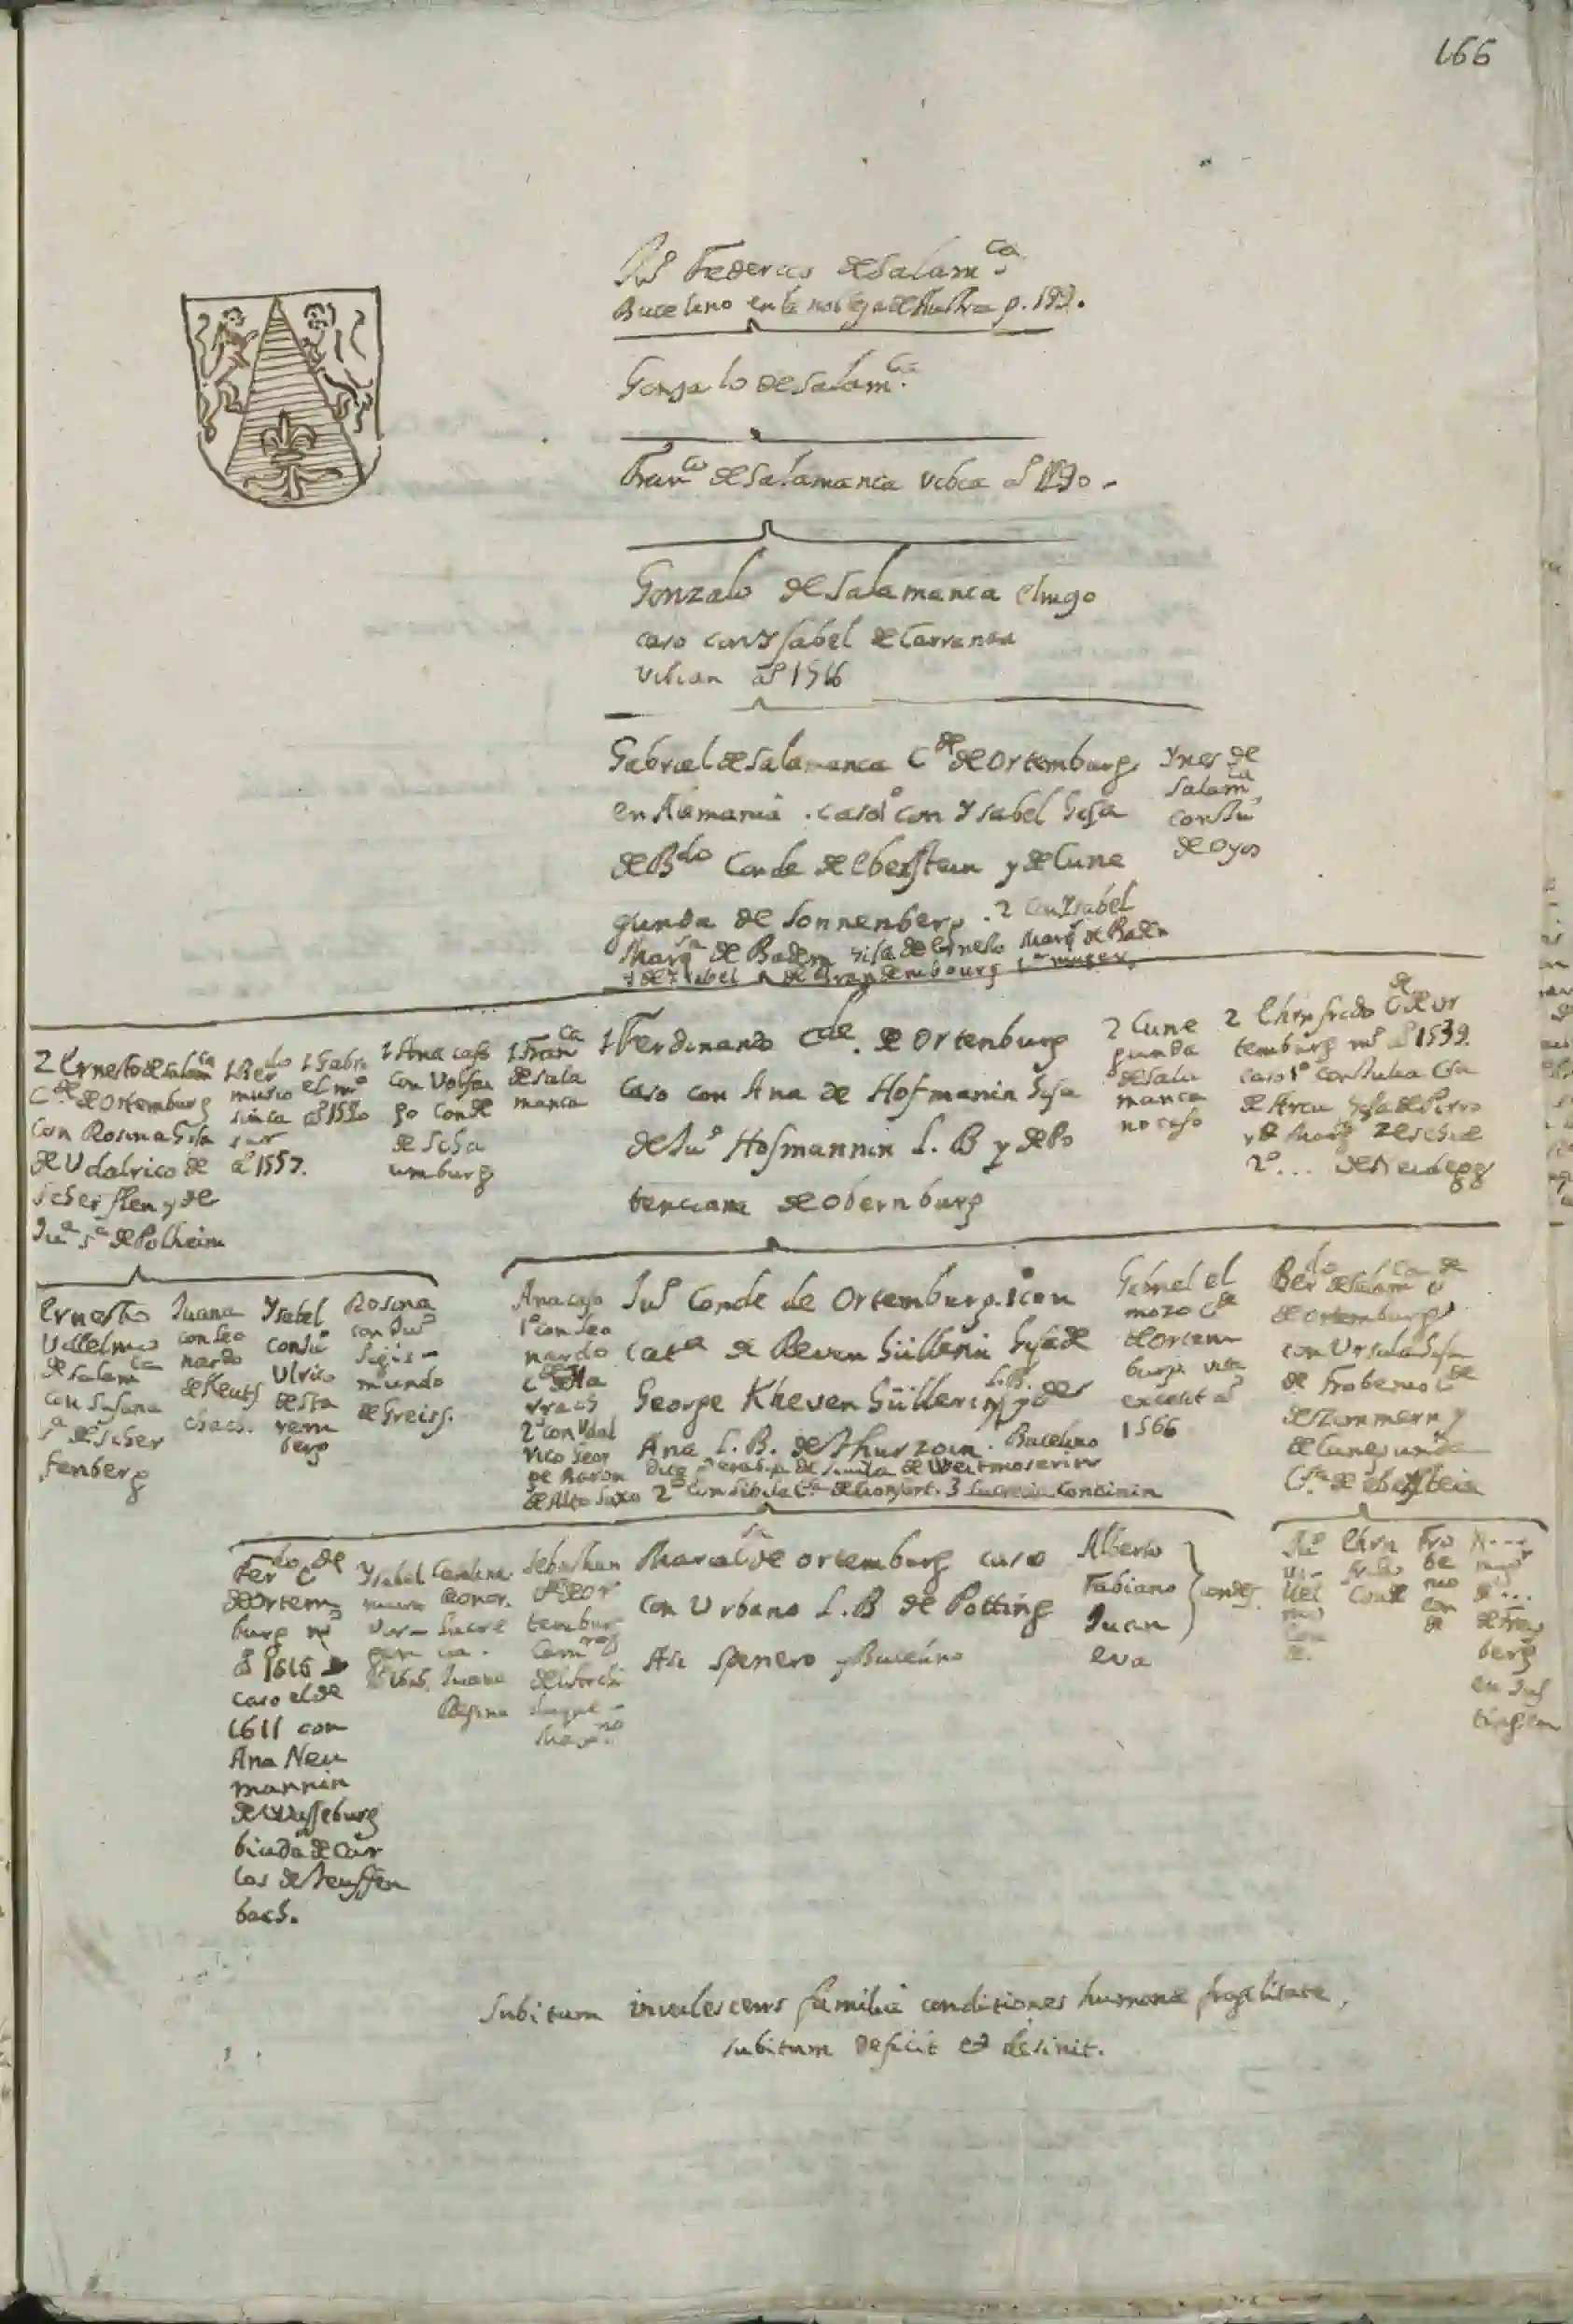 166
Federico de Salam.ca
Bucelino en la p. 199.
Gonzalo de Salam.ca
Fran.co de Salamanca vibia
Gonzalo de Salamanca el
caso con Ysabel de Carranza
Vibian
Gabriel de Salamanca C.de de Ortemburg
en Alemania . caso 1º con Ysabel hija
de B.do Conde de Eberstein y de Cune
gunda de Sonnenberg . 2 con Ysabel
Marq.sa de Baden hija de Marq.s de Baden
y de Ysabel de Brandembourg 1.a muger.
Ynes de
Salam.ca
con Ju.º
de Oyos
2 Ernesto de Salam.ca
C.de de Ortemburg
con Rosina hija
de Udalrico de
Scherffen y de
Ju.a s.a de Polheim
1 Ber.do
murio
sinca
sar
aº 1557.
1 Gabri
el mº
aº 1550
1 Ana caso
con Volfan
go Conde
de Scha
umburg
1 Fran.ca
de Sala
manca
1 Ferdinando C.de de Ortenburg
caso con Ana de Hofmanin hija
de Ju.º Hofmannin L. B y de Po
tenciana de Obernburg
2 Cune
gunda
de Sala
manca
no caso
2 Ehrnfredo C.de de Or
temburg mº aº 1539.
caso 1º con Julia C.sa
de Arcu hija de Pirro
2º ...
Ernesto
Villelmo
de Salam.ca
con Susana
s.a de Scher
fenberg
Juana
con Leo
nardo
de Keuts
chach.
Ysabel
con Ju.º
Ulrico
de Sta
rem
berg
Rosina
con Ju.º
Sigis-
mundo
de Greiss.
Ana caso
1º con Leo
nardo
C.de de Ha
rrach
2º con Udal
rico Geor
ge Baron
de Alto Saxo
Ju.º Conde de Ortemburg. 1 con
Cat.a de Keven hüllerin hija de
George Kheven hüllerin L.B. y de
Ana L. B. de Thurzoin . Bucelino
dice de Weitmoserin
2º con Sibila C.sa de Monfort. 3 Lucrecia Concinin
Gabriel el
mozo C.de
de Ortem
burg. vita
excesit aº
1566
Ber.do de Salam.ca C.de
de Ortemburg
con Ursula hija
de Frobenio C.de
de Zimmern y
de Cunegunda
C.sa de Eberstein
Fer.do C.de
de Ortem
burg mº
aº 1616
caso el de
1611 con
Ana Neu
mannin
de Wasseburg
biuda de Car
los de Teuffen
bach.
Ysabel
Carolina
Leonor.
Lucre
cia.
Juana
Regina
Sebastian
C.de de Or
temburg
Cam.ro
del Archi
duque
Max.no
Maria C.sa de Ortemburg caso
con Urbano L. B de Potting
Asi Spenero y Bucelino
Alberto
Fabiano
Juan
condes.
Eva
Ehrn
fredo
Conde
Fro
be
nio
con
de
N...
muger
de ...
de Frey
berg
en Jus
tingen
Subitum invalescens familia conditiones humanæ fragilitate,
subitum deficit et desinit.